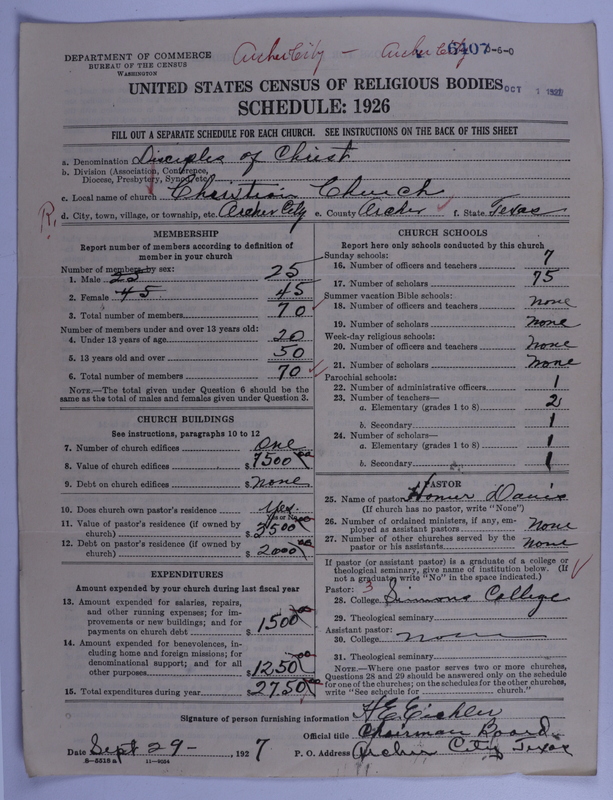 Archer City - Archer City
6407 8-6-0
DEPARTMENT OF COMMERCE
BUREAU OF THE CENSUS
WASHINGTON
OCT 1 1927
UNITED STATES CENSUS OF RELIGIOUS BODIES
SCHEDULE: 1926
FILL OUT A SEPARATE SCHEDULE FOR EACH CHURCH. SEE INSTRUCTIONS ON THE BACK OF THIS SHEET
a. Denomination Disciples of Christ
b. Division (Association, Conference, Diocese, Presbytery, Synod, etc.
c. Local name of church Christian Church
R.
d. City, town, village, or township, etc. Archer City e. County Archer f. State Texas
MEMBERSHIP
Report number of members according to definition of
member in your church
Number of members by sex:
1. Male 25 25
2. Female 45 45
3. Total number of members 70
Number of members under and over 13 years old:
4. Under 13 years of age 20
5. 13 years old and over 50
6. Total number of members 70
NOTE.—The total given under Question 6 should be the
same as the total of males and females given under Question 3.
CHURCH BUILDINGS
See instructions, paragraphs 10 to 12
7. Number of church edifices One
8. Value of church edifices $ 7500 00
9. Debt on church edifices $ None
10. Does church own pastor's residence Yes.
Yes or No
11. Value of pastor's residence (if owned by
church) $ 3500 00
12. Debt on pastor's residence (if owned by
church) $ 2000 00
EXPENDITURES
Amount expended by your church during last fiscal year
13. Amount expended for salaries, repairs,
and other running expenses; for im-
provements or new buildings; and for
payments on church debt $ 1500 00
14. Amount expended for benevolences, in-
cluding home and foreign missions; for
denominational support; and for all
other purposes $ 1250 00
15. Total expenditures during year $ 2750 00
CHURCH SCHOOLS
Report here only schools conducted by this church
Sunday schools:
16. Number of officers and teachers 7
17. Number of scholars 75
Summer vacation Bible schools:
18. Number of officers and teachers none
19. Number of scholars none
Week-day religious schools:
20. Number of officers and teachers none
21. Number of scholars none
Parochial schools:
22. Number of administrative officers 1
23. Number of teachers—
a. Elementary (grades 1 to 8) 2
b. Secondary 1
24. Number of scholars—
a. Elementary (grades 1 to 8) 1
b. Secondary 1
PASTOR
25. Name of pastor Homer Davis
(If church has no pastor, write "None")
26. Number of ordained ministers, if any, em-
ployed as assistant pastors none
27. Number of other churches served by the
pastor or his assistants none
If pastor (or assistant pastor) is a graduate of a college or
theological seminary, give name of institution below. (If
not a graduate, write "No" in the space indicated.)
Pastor: 3
28. College Simmons College
29. Theological seminary
Assistant pastor:
30. College none
31. Theological seminary
NOTE.—Where one pastor serves two or more churches,
Questions 28 and 29 should be answered only on the schedule
for one of the churches; on the schedules for the other churches,
write "See schedule for church."
Signature of person furnishing information H E Eichler
Official title Chairman Board
Date Sept 29 - , 1927 P. O. Address Archer City, Texas
8-5518 a 11-9034